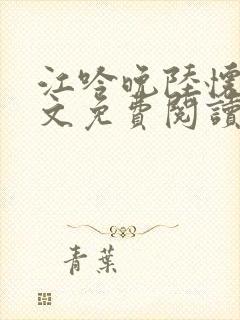 江吟晚陸懷
文免費閱讀
青葉